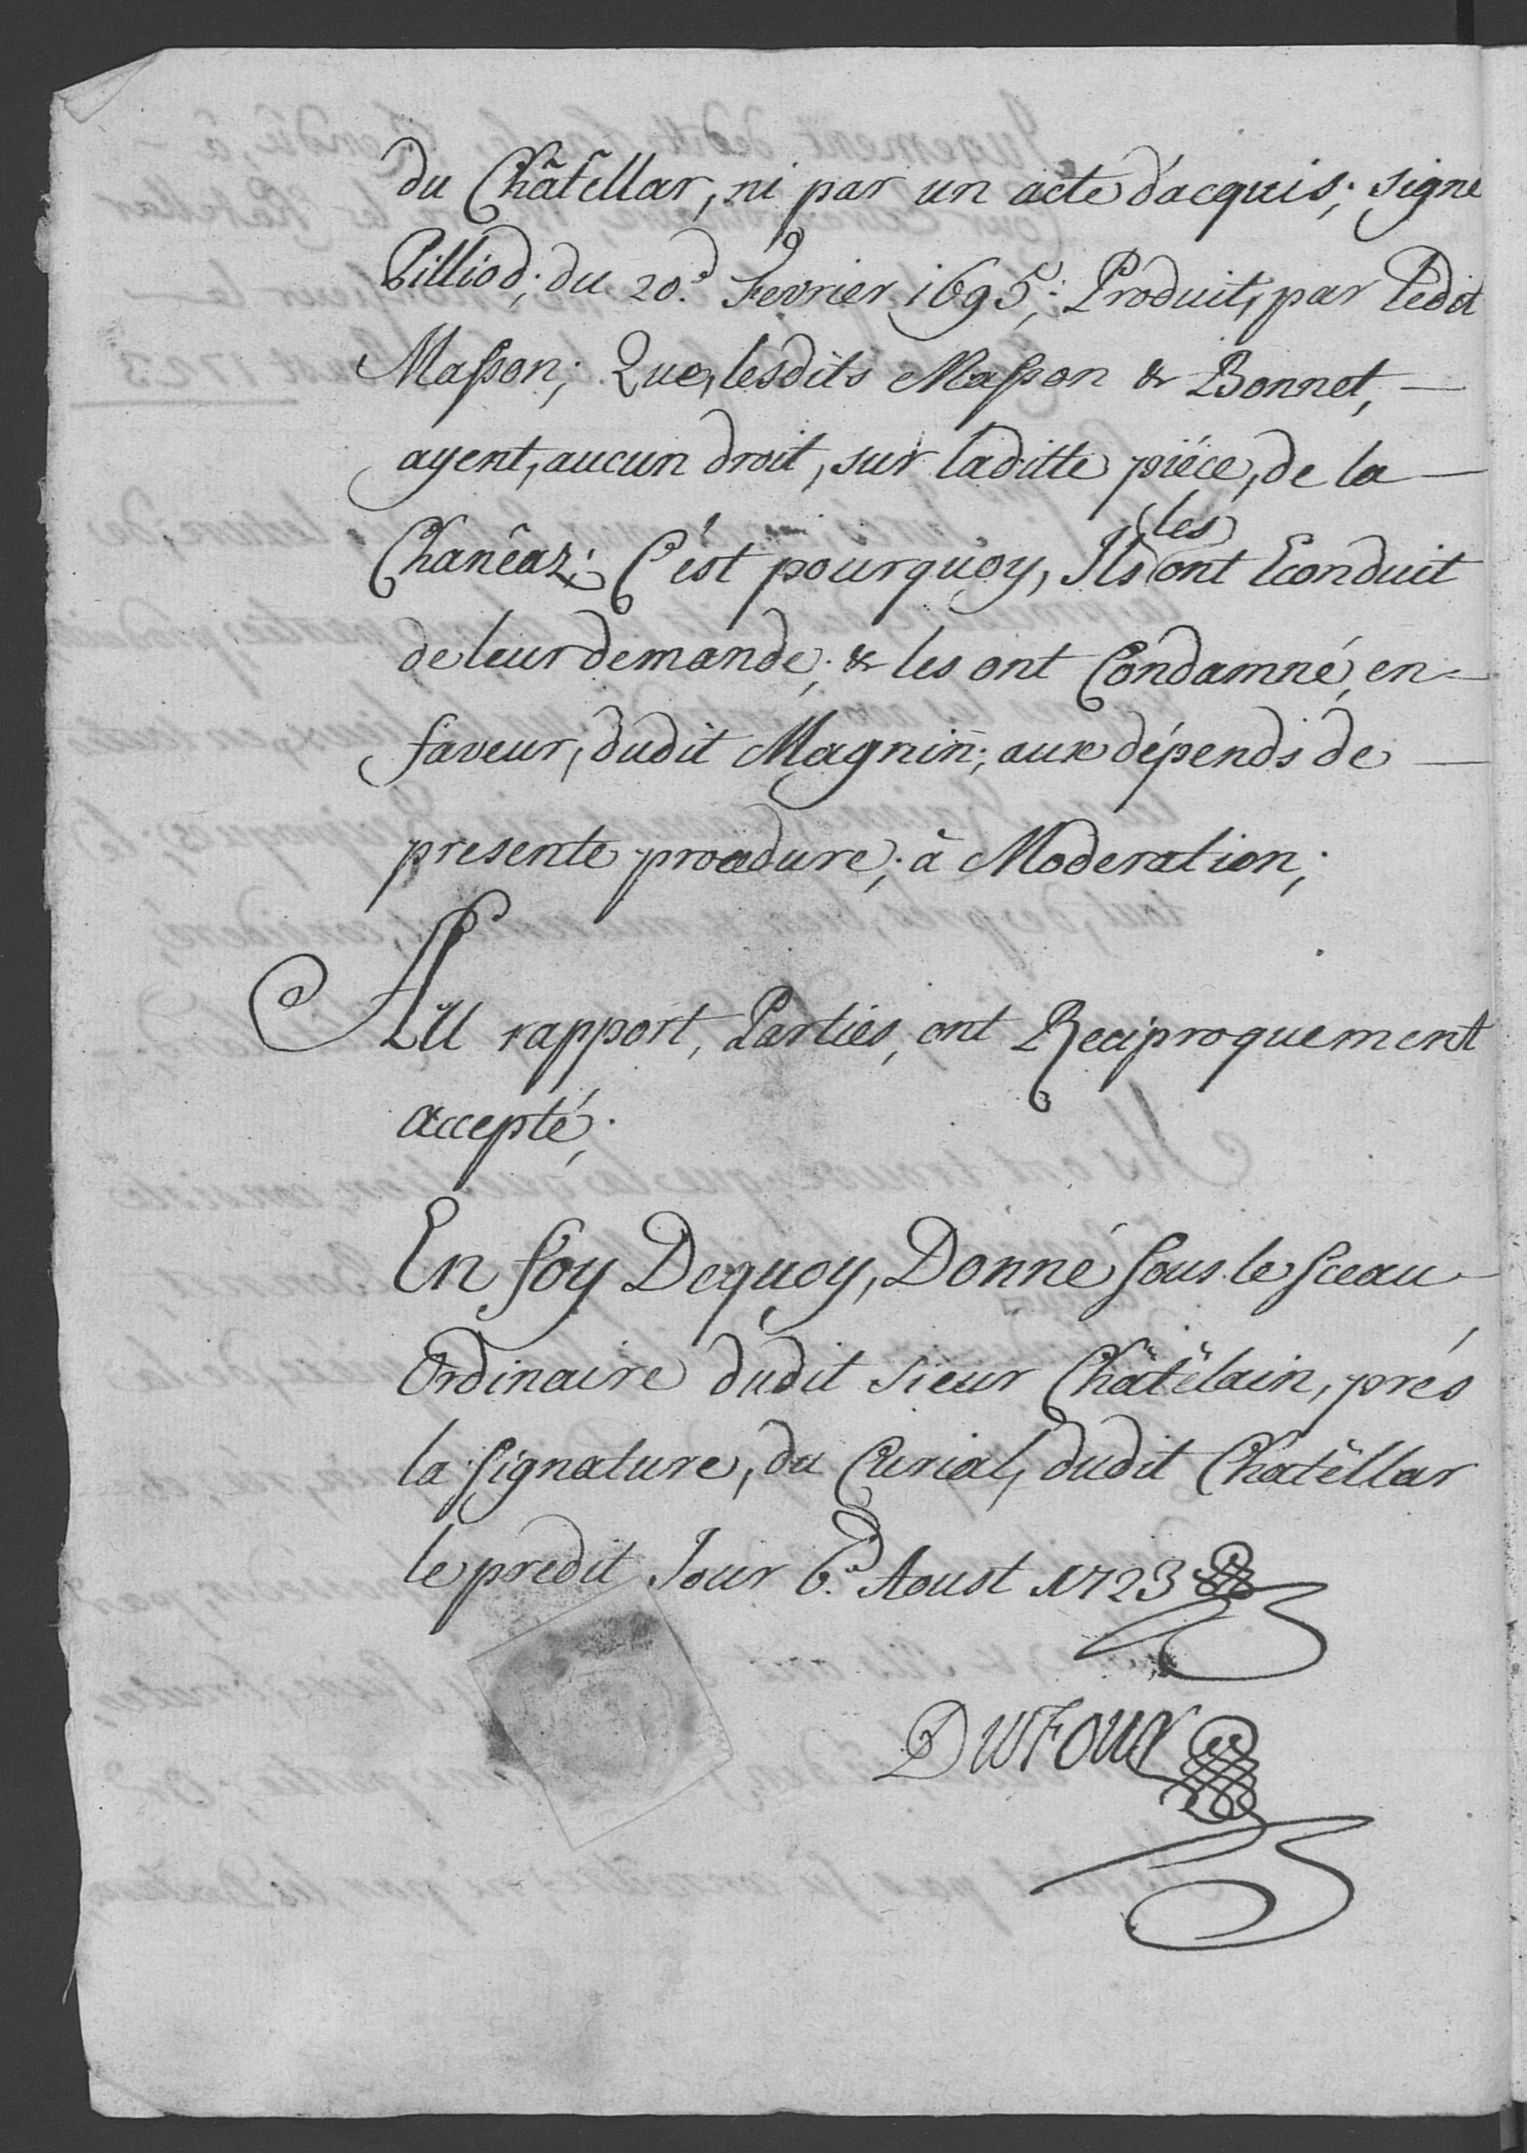 du Châtêllar, ni par un acte d'acquis; signé
Pilliod; du 20.e Fevrier 1695; Produit, par ledit
Masson; Que, lesdits Masson & Bonnet, —
ayent, aucun droit, sur laditte piéce, de la —
Chanêaz; C'est pourquoy, Ils les ont Econduit
de leur demande; & les ont Condamné, en —
faveur, dudit Magnin; aux dépends de —
presente procedure; à Moderation;
Au rapport, Parties, ont Reciproquement
accepté;
En foy Dequoy, Donné sous le sceau
Ordinaire dudit sieur Châtêlain, prés
la signature, du Curial, dudit Chatêllar
le predit Jour 6.e Aoust 1723
Dufour